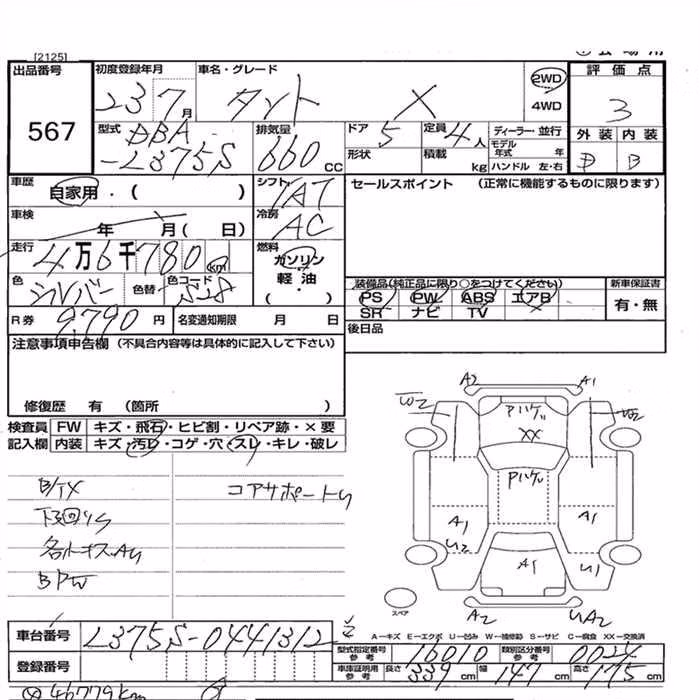 [2125]
出品番号
567
初度登録年月
23 7月
車名・グレード
タント X
2WD
4WD
評価点
3
型式
DBA
-L375S
排気量
660 CC
ドア 5
形状
定員 4人
積載 kg
ディーラー・並行
モデル年式 年
ハンドル 左・右
外装 内装
D B
車歴
自家用・( )
シフト
IAT
セールスポイント (正常に機能するものに限ります)
車検
年 月( 日)
冷房
AC
走行
4万6千780 km
燃料
ガソリン
軽油
( ・ )
色
シルバー
色替
色コード
S28
装備品(純正品に限り○をつけてください)
新車保証書
PS PW ABS エアB
SR ナビ TV
有・無
R券 9,790 円
名変通知期限 月 日
後日品
注意事項申告欄 (不具合内容等は具体的に記入して下さい)
修復歴 有 (箇所 )
検査員 FW キズ・飛石・ヒビ割・リペア跡・×要
記入欄 内装 キズ・汚レ・コゲ・穴・スレ・キレ・破レ
B/TX
コアサポートU
下回りS
BPW
A2 A1
W2
Pハゲ
XX
Pハゲ
A1
U2
A1
U1
A1
A2
UA2
スペア
A−キズ E−エクボ U−凹み W−補修跡 S−サビ C−腐食 XX−交換済
車台番号
L375S-0441312
型式指定番号 参考
16010
類別区分番号 参考
0024
登録番号
車庫証明用 参考
長さ 339 cm
幅 147 cm
高さ 175 cm
46779km